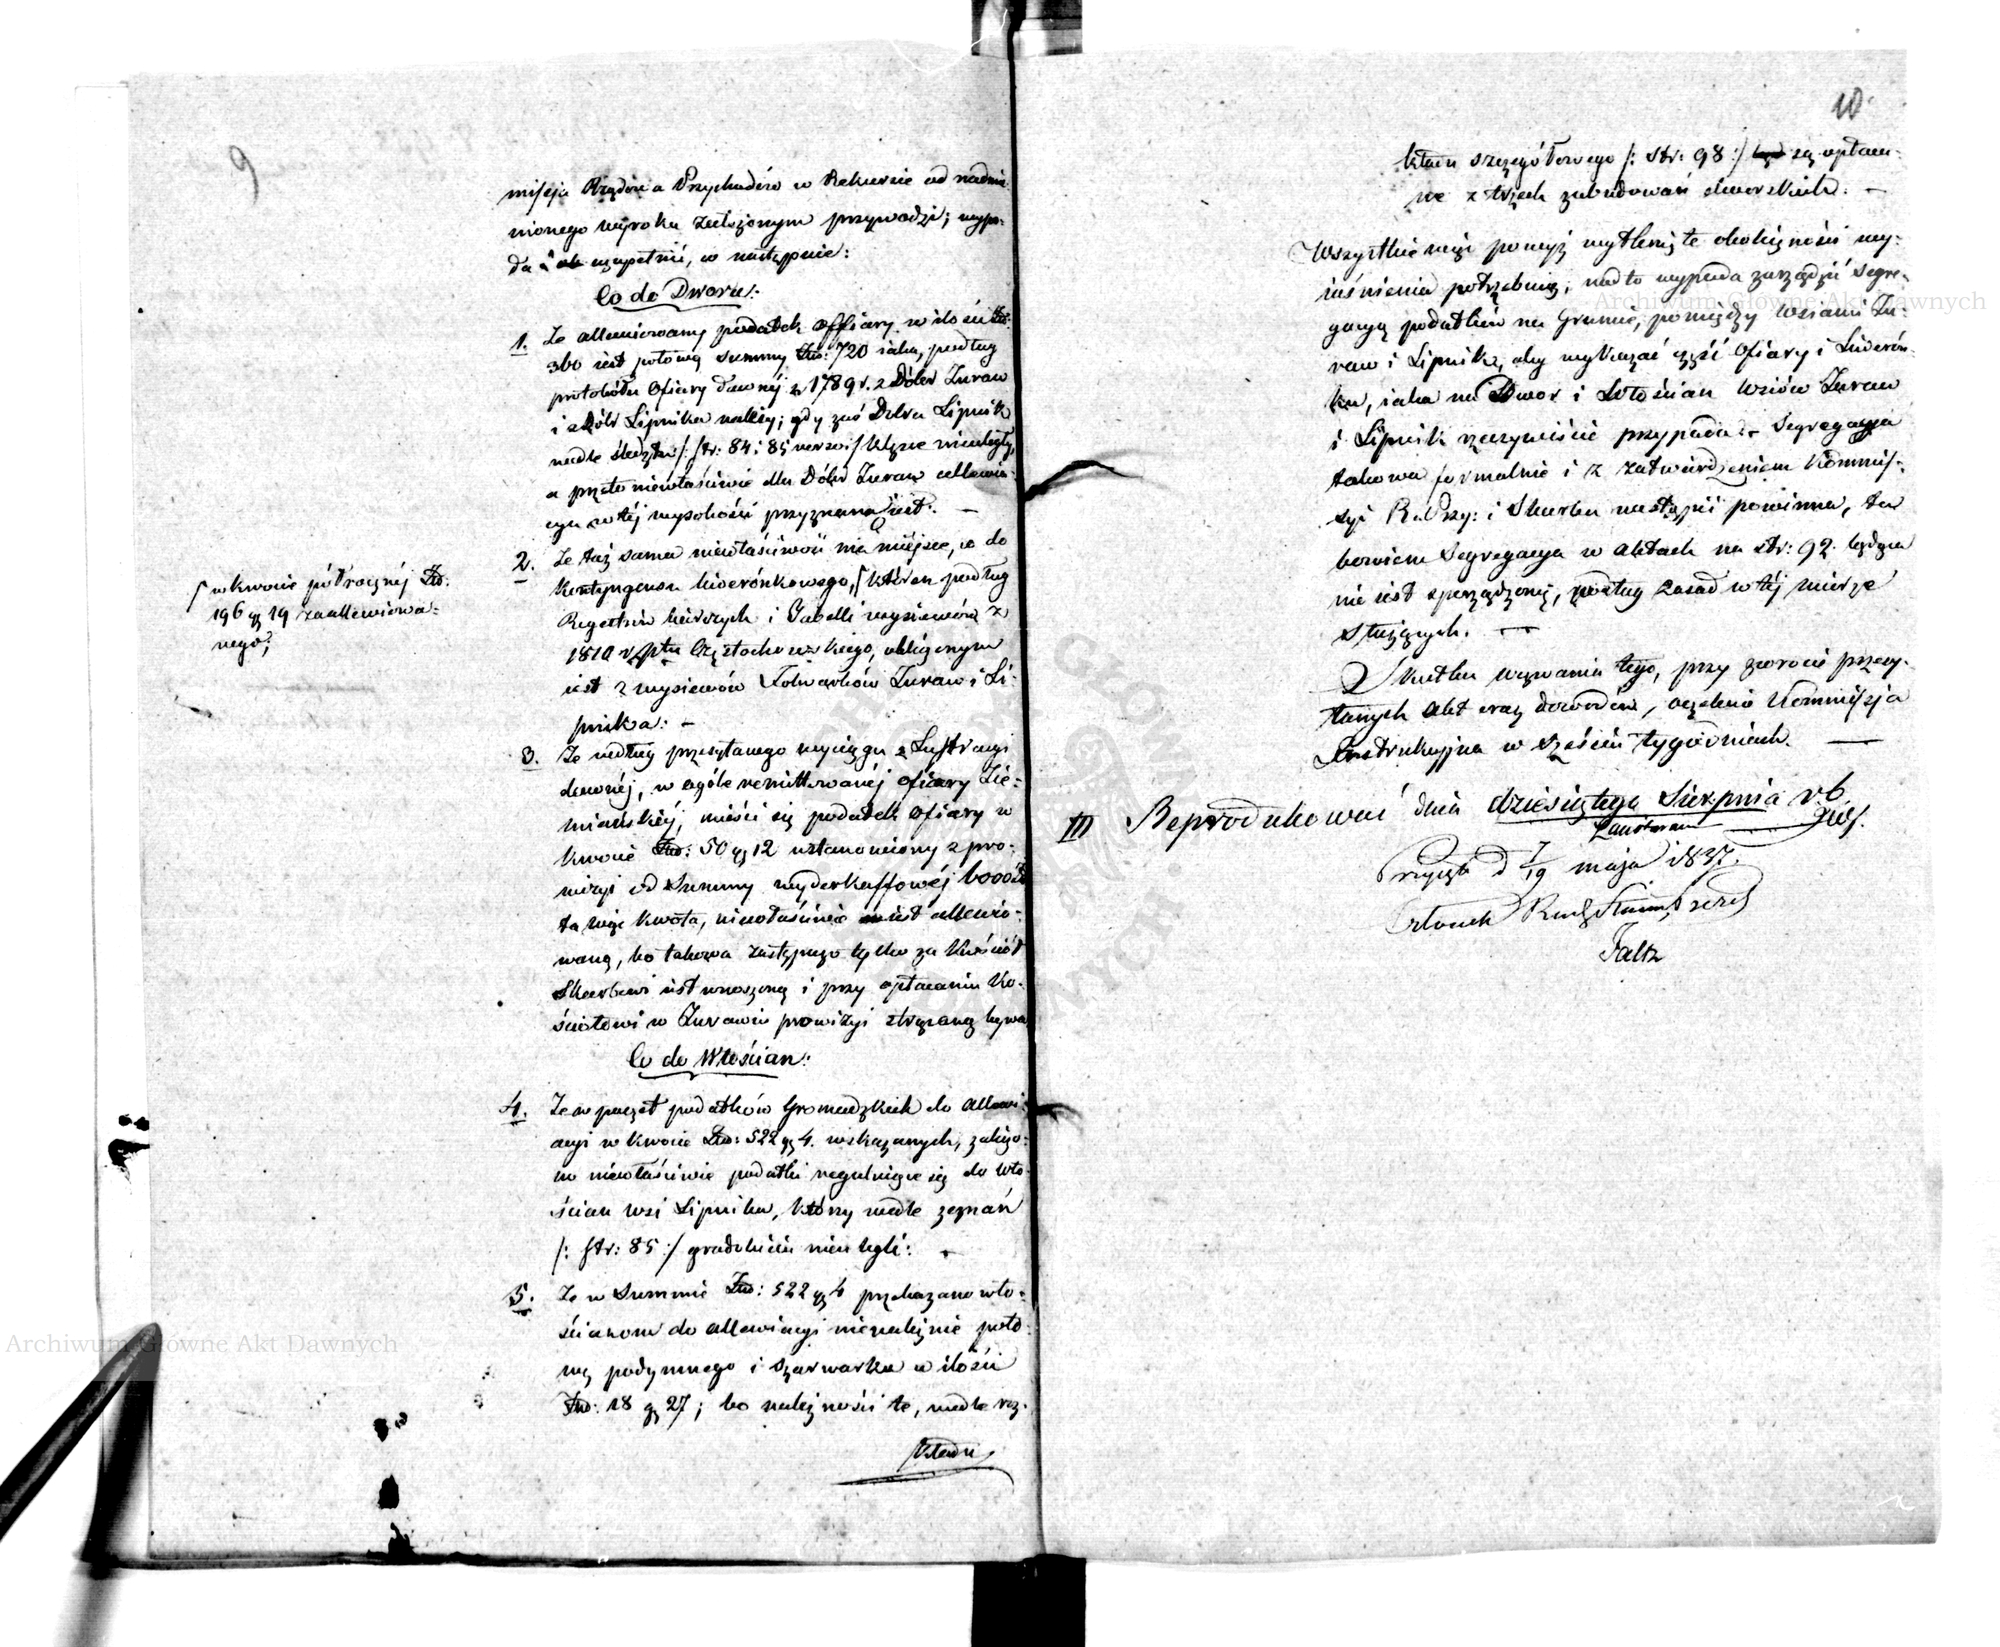 9
misya Rządowa Przychodów w Rekursie od nadmie-
nionego wyroku założonym przywodzi; wypa-
da uzupełnić, w następnie:
Co do Dworu:
1. Że allewiowany podatek offiary w ilości Złp:
360 jest połową summy Złp: 720 iaka, podług
protokółu Ofiary dawnéj z 1789 r. z Dóbr Żuraw
i z Dóbr Lipnika należy; gdy zaś Dobra Lipnik
wedle śledztwa /: str: 84 i 85 verso :/ klęsce nieuległy,
a przeto niewłaściwie dla Dóbr Żuraw allewia-
cya w téj wysokości przyznana iest. —
2. Że taż sama niewłaściwość ma miejsce, co do
Kontyngensu liwerónkowego, ſ który podług
Regestrów bierczych i Tabelli wysiewów z
1810 r. ptu Częstochowskiego, obliczonym
iest z wysiewów Folwarków Żuraw i Li-
pnika: —
ſ w kwocie półrocznéj Złp:
196 gr 19 zaallewiowa-
nego;
3. Że według przesłanego wyciągu z Lustracyi
dawnéj, w ogóle remittowanéj ofiary Zie-
miańskiéj, mieści się podatek ofiary w
kwocie Złp: 50 gr 12 ustanowiony z pro-
wizyi od Summy wyderkaffowéj 6000 Zł
ta więc kwota, niewłaściwie iest allewio-
waną, bo takowa zastępuje tylko za Kościół
Skarbowi iest wnoszoną i przy opłacaniu Ko-
ściołowi w Żurawiu prowizyi strącaną bywa
Co do Włościan:
4. Że w poczet podatków Gromadzkich do allewi-
acyi w kwocie Złp: 522 gr 4. wskazanych, zaliczo-
no niewłaściwie podatki regulujące się do wło-
ścian wsi Lipnika, którzy wedle zeznań
/: str: 85 :/ gradobiciu nieulegli: —
5. Że w Summie Złp: 522 gr 4 przekazano wło-
ścianom do allewiacyi nienależnie poło-
wę podymnego i szarwarku w ilości
Złp: 18 gr 27; bo należności te, wedle roz-
kładu
10.
kładu szczegółowego /: str: 98 :/ są opłaco-
ne z trzech zabudowań dworskich. —
Wszystkie więc powyż wytknięte okoliczności wy-
iaśnienia potrzebują; nadto wypada zarządzić segre-
gacyą podatków na Gruncie, pomiędzy Wsiami Żu-
raw i Lipnik, aby wykazać część Ofiary i Liwerón-
ku, iaka na Dwor i Włościan Wsiów Żuraw
i Lipnik rzeczywiście przypada. Segregacya
takowa formalnie i z zatwierdzeniem Kommis-
syi R. Przy: i Skarbu nastąpić powinna, ta
bowiem Segregacya w aktach na str: 92. będąca
nie iest sporządzoną, podług zasad w téj mierze
służących. —
Skutku wezwania tego, przy zwrocie przesy-
łanych akt oraz dowodów, oczekuie Kommissja
Instrukcyjna w sześciu tygodniach. —
III Reprodukować dnia dziesiątego Sierpnia r b
Przyjęto d 7/19 maja 1837.
Członek
Faltz
Archiwum Główne Akt Dawnych
Archiwum Główne Akt Dawnych